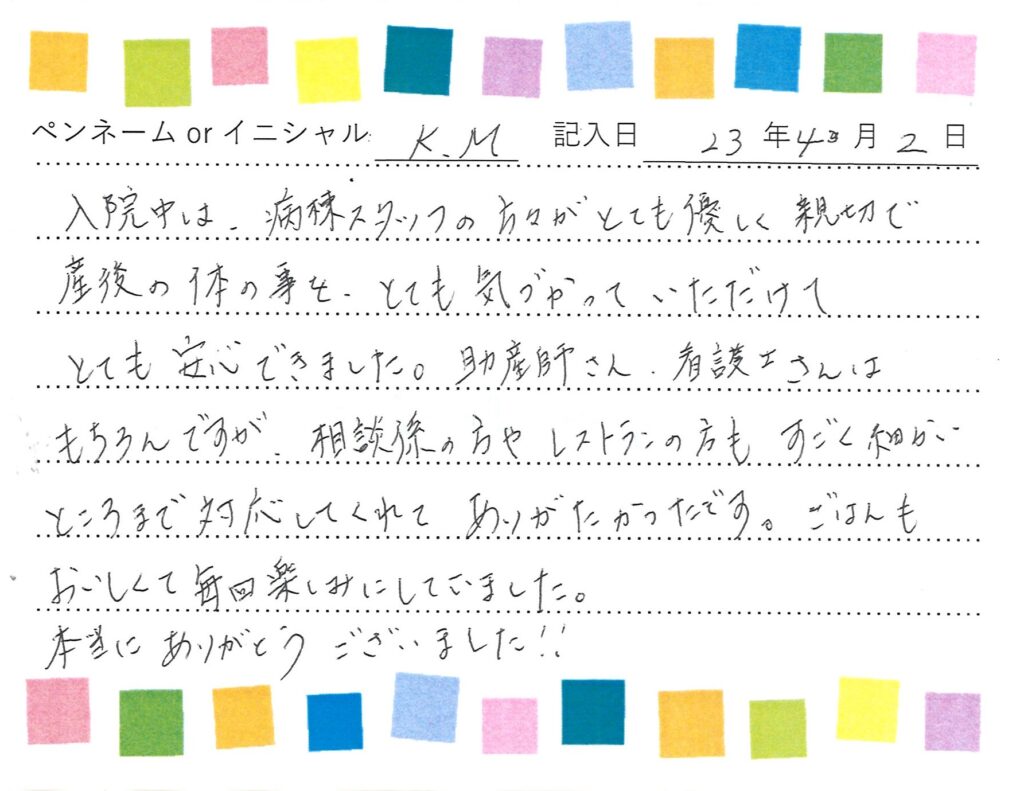 ペンネーム or イニシャル: K.M 記入日 23年4月2日
入院中は、病棟スタッフの方々がとても優しく親切で
産後の体の事を、とても気づかっていただけて
とても安心できました。助産師さん、看護士さんは
もちろんですが、相談係の方やレストランの方もすごく細かい
ところまで対応してくれてありがたかったです。ごはんも
おいしくて毎回楽しみにしていました。
本当にありがとうございました!!